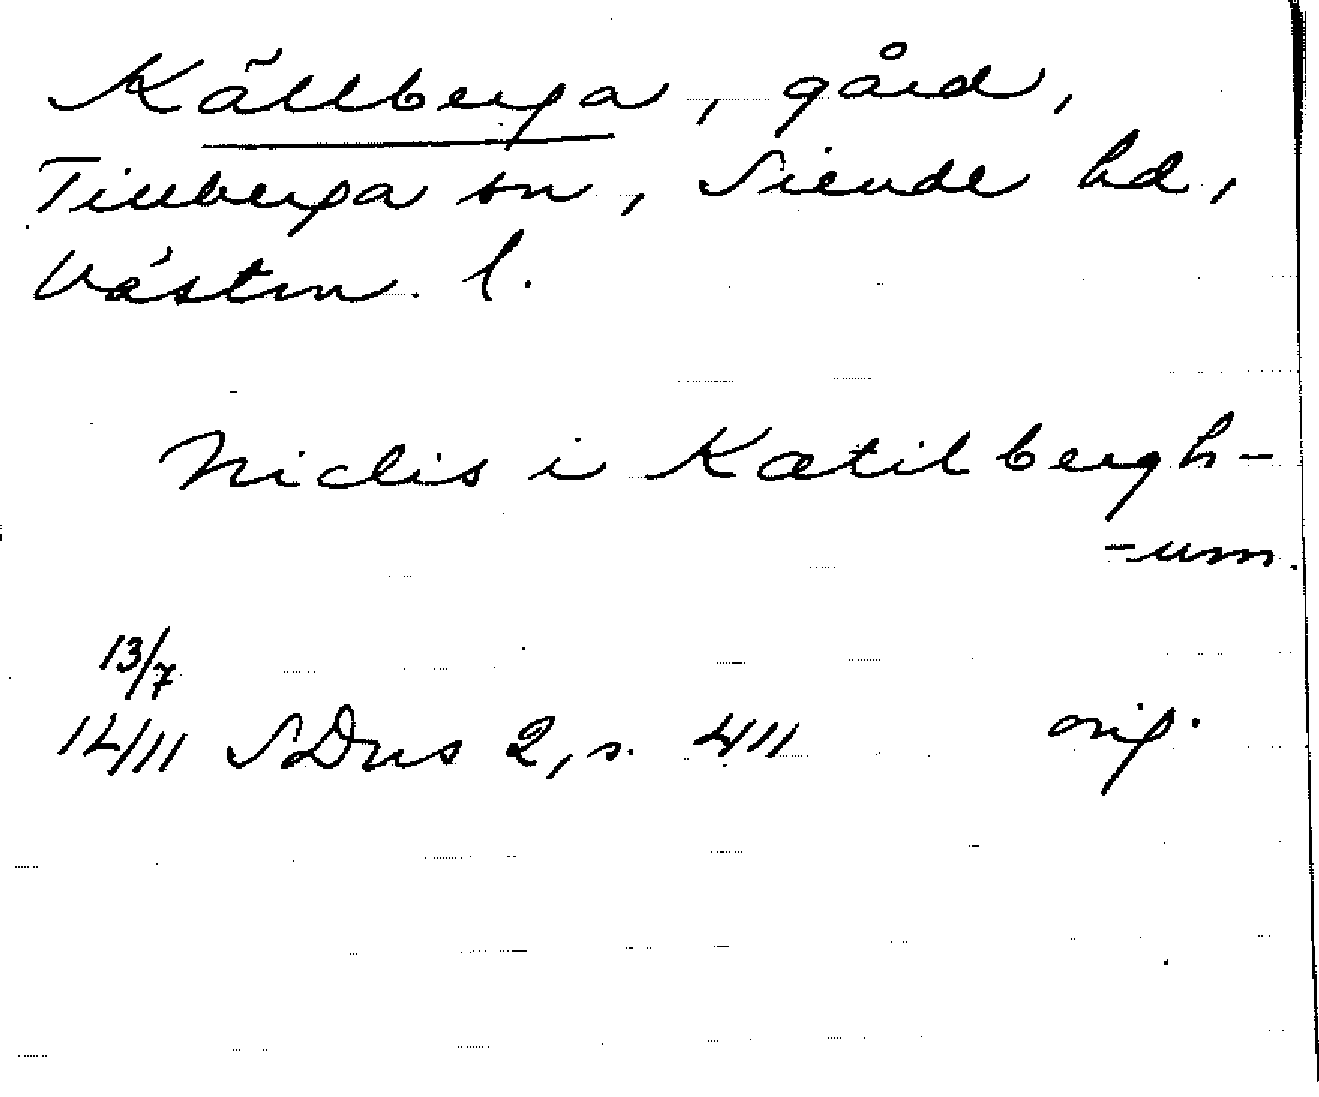 Källberga, gård,
Tillberga sn, Siende hd,
Västm. l.
Niclis i Katilbergh-
-um.
13/7
1411 SDns 2, s. 411 orig.